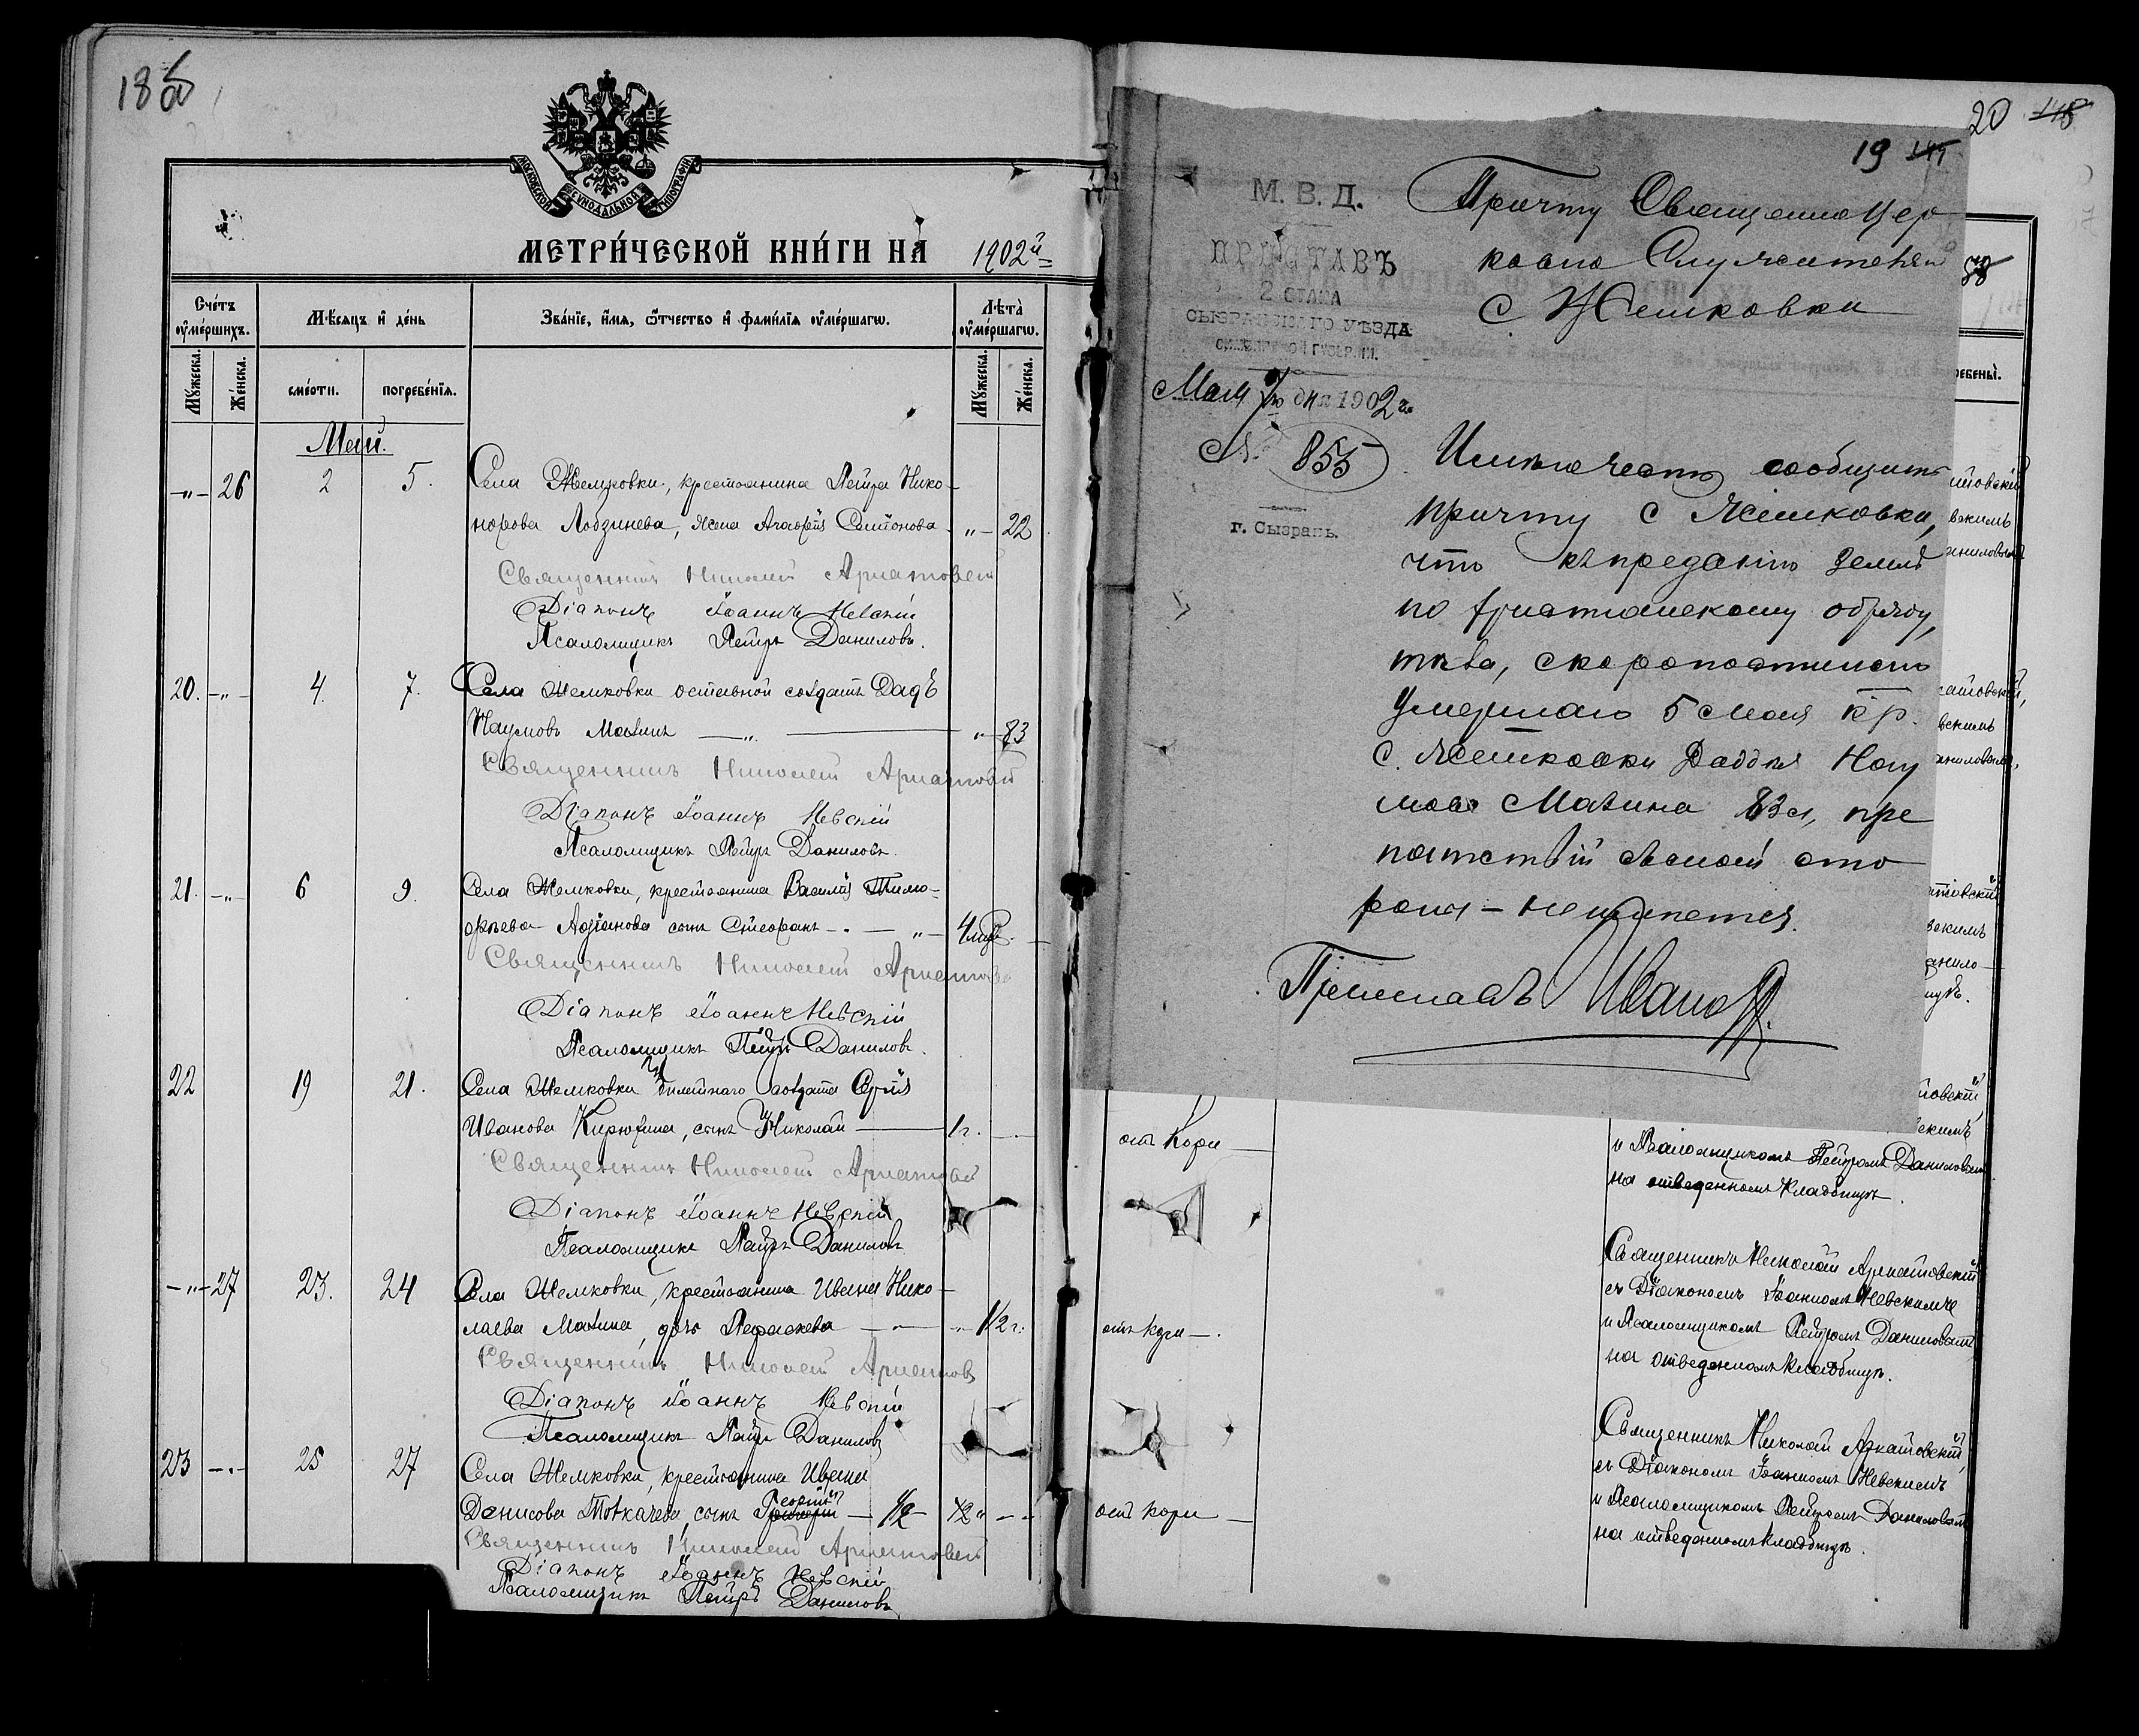 18об
МОСКОВСКОЙ СѴНОДАЛЬНОЙ ТИПОГРАФІИ
МЕТРИ́ЧЕСКОЙ КНИ́ГИ НА 1902й
Сче́тъ ᲂу҆ме́ршихъ.
Мѣ́сяцъ и҆ де́нь
Зва́нїе, и҆́мя, ѻ҆́тчество и҆ фами́лїя ᲂу҆ме́ршагѡ.
Лѣ́та ᲂу҆ме́ршагѡ.
Мꙋ́жеска.
Же́нска.
сме́рти.
погребе́нїя.
Мꙋ́жеска.
Же́нска.
Май.
-"- 26 2 5. Села Жемковки, крестьянина Петра Нико-
норова Лобзинева, жена Агафія Симонова -"- 22
Священникъ Николай Арнатовскій
Діаконъ Іоаннъ Невскій
Псаломщикъ Петръ Даниловъ.
20. -"- 4. 7. Села Жемковки отставной солдатъ Дадѣ
Наумовъ Матинъ -"- " 83
Священникъ Николай Арнатовскій
Діаконъ Іоаннъ Невскій
Псаломщикъ Петръ Даниловъ.
21. -"- 6 9. Села Жемковки, крестьянина Василія Тимо-
фѣева сынъ Стефанъ -"- 4
Священникъ Николай Арнатовскій
Діаконъ Іоаннъ Невскій
Псаломщикъ Петръ Даниловъ.
22 19 21. Села Жемковки билетнаго солдата Сергія
Иванова Кирюхина, сынъ Николай 1 г.
Священникъ Николай Арнатовскій
Діаконъ Іоаннъ Невскій
Псаломщикъ Петръ Даниловъ
-"- 27 23. 24 Села Жемковки, крестьянина Ивана Нико-
лаева Матина, дочь Параскева -"- 1/2 г.
Священникъ Николай Арнатовскій
Діаконъ Іоаннъ Невскій
Псаломщикъ Петръ Даниловъ
23 -"- 25 27 Села Жемковки, крестьянина Ивана
Денисова Толкачева, сынъ Георгій 1/2
Священникъ Николай Арнатовскій
Діаконъ Іоаннъ Невскій
Псаломщикъ Петръ Даниловъ
20
19
М. В. Д.
ПРИСТАВЪ
2 СТАНА
СЫЗРАНСКАГО УѢЗДА
СИМБИРСКОЙ ГУБЕРНІИ.
Мая 7 дня 1902 г.
№ 855
г. Сызрань.
Причту Священноцер
ковно Служителей
с. Жемковки
Имѣю честь сообщить
причту с Жемковки,
что къ преданію землѣ
по христіанскому обряду,
тѣла, скоропостижно
умершаго 5 Мая кр.
с. Жемковки Даддѣя Нау
мова Матина 83 л, пре
пятствій съ моей сто
роны - не имѣется.
Приставъ Иванов
отъ кори
отъ кори
отъ кори
и Псаломщикомъ Петромъ Даниловымъ
на отведенномъ кладбищѣ.
Священникъ Николай Арнатовскій
съ Діакономъ Іоанномъ Невскимъ
и Псаломщикомъ Петромъ Даниловымъ
на отведенномъ кладбищѣ.
Священникъ Николай Арнатовскій,
съ Діакономъ Іоанномъ Невскимъ
и Псаломщикомъ Петромъ Даниловымъ
на отведенномъ кладбищѣ.